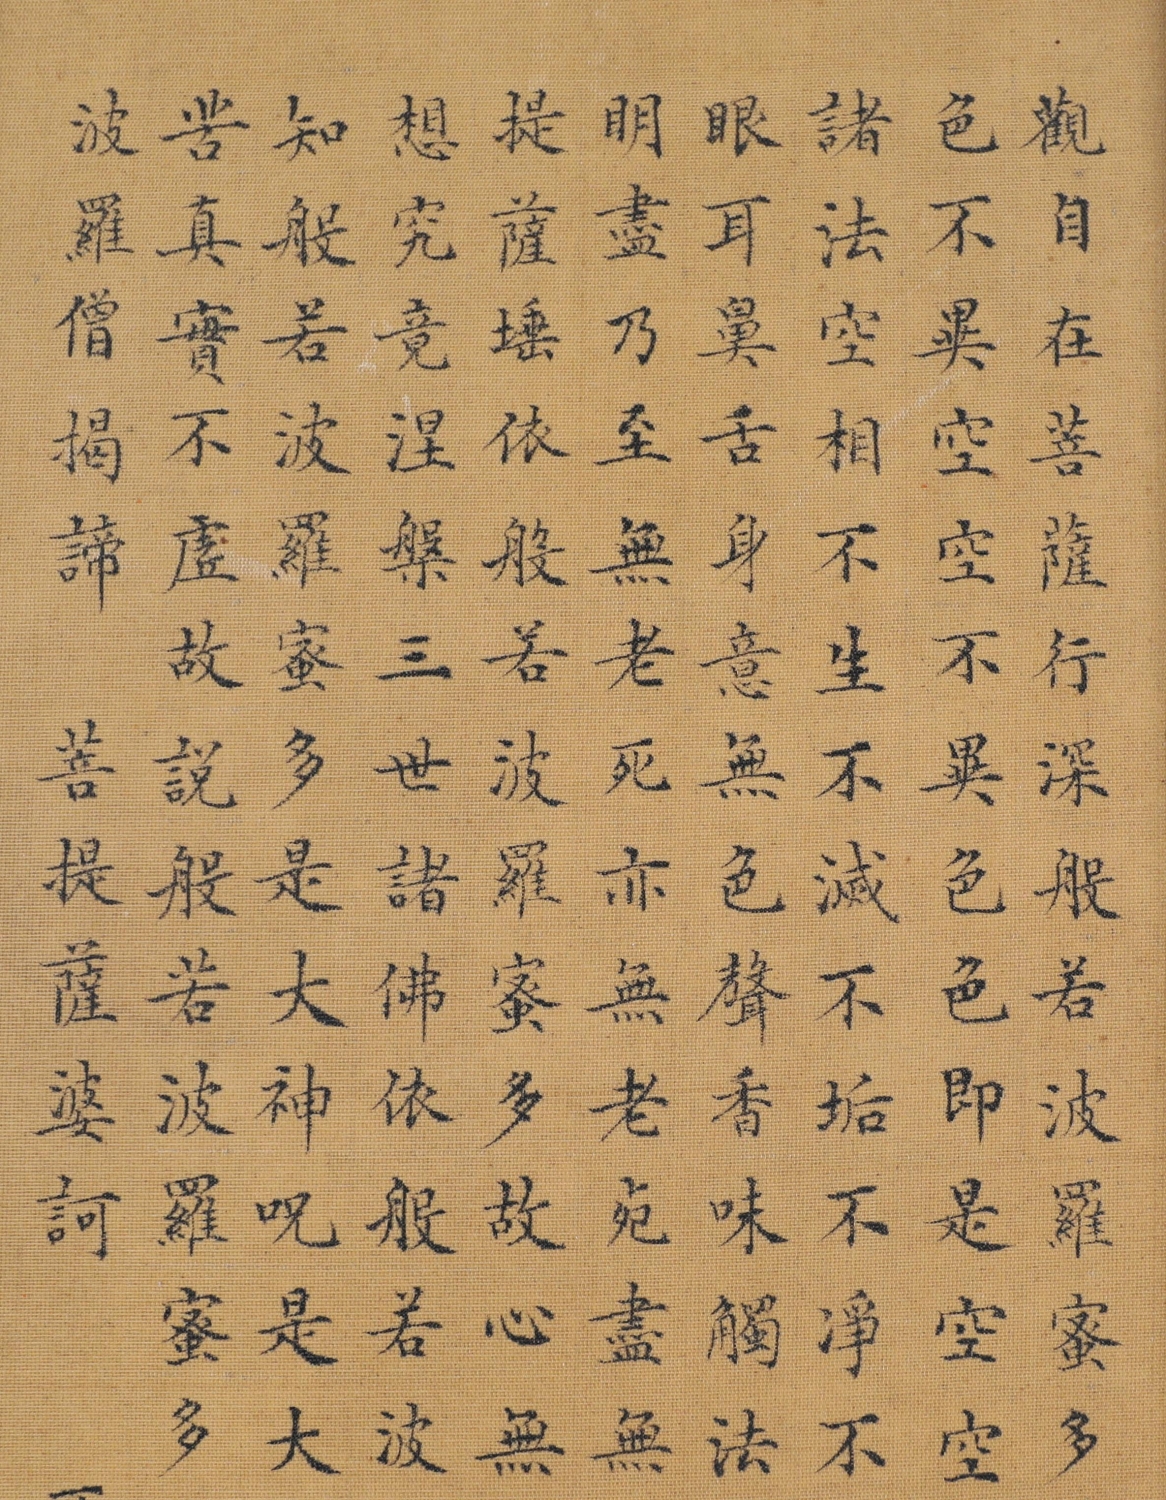 觀自在菩薩行深般若波羅蜜多
色不異空空不異色色即是空空
諸法空相不生不滅不垢不淨不
眼耳鼻舌身意無色聲香味觸法
明盡乃至無老死亦無老死盡無
提薩埵依般若波羅蜜多故心無
想究竟涅槃三世諸佛依般若波
知般若波羅蜜多是大神呪是大
苦真實不虛故說般若波羅蜜多
波羅僧揭諦 菩提薩婆訶